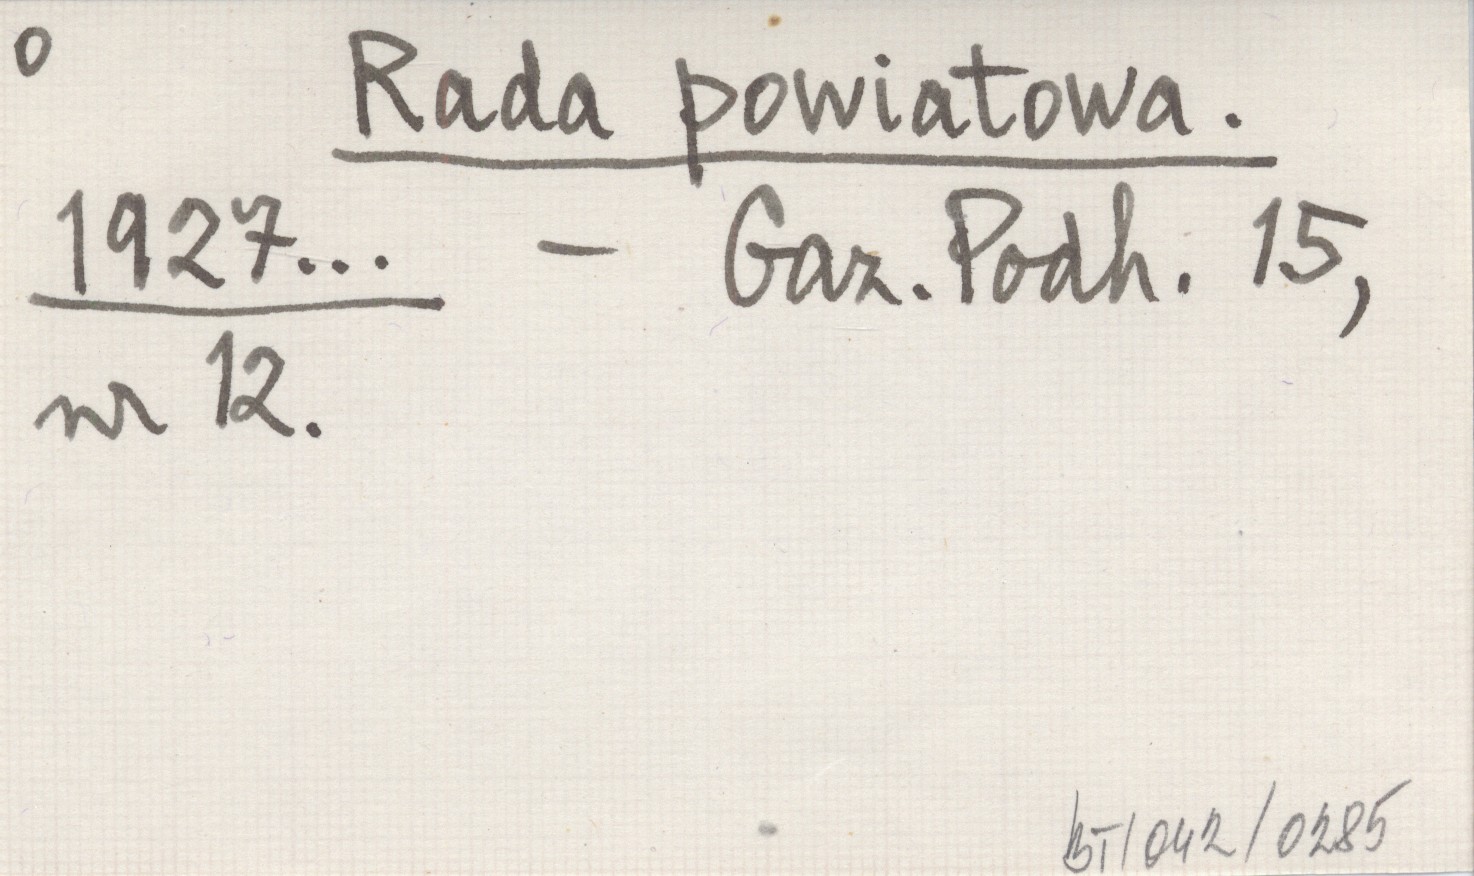 o
Rada powiatowa.
1927... – Gaz. Podh. 15,
nr 12.
BT/042/0285